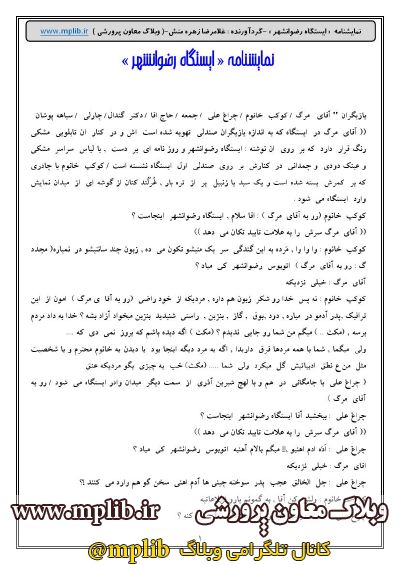 نمایشنامه « ایستگاه رضوانشهر » -گردآورنده : غلامرضا زهره منش-( وبلاگ معاون پرورشی ) www.mplib.ir
نمایشنامه « ایستگاه رضوانشهر »
بازیگران ** آقای مرگ / کوکب خانوم / چراغ علی / جمعه / حاج آقا / دکتر گندال/ چارلی / سیاهه پوشان
(( آقای مرگ در ایستگاه که به اندازه بازیگران صندلی تهیه شده است اش و در کنار ان تابلویی مشکی
رنگ قرار دارد که بر روی ان نوشته : ایستگاه رضوانشهر و روز نامه ای بر دست , با لباس سراسر مشکی
و عینک دودی و چمدانی در کنارش بر روی صندلی اول ایستگاه نشسته است / کوکب خانوم با چادری
که بر کمرش بسته شده است و یک سبد یا زنبیل پر از تره بار , غُرکُند کنان از گوشه ای از میدان نمایش
وارد ایستگاه می شود .
کوکب خانوم (رو به آقای مرگ ) : اقا سلام , ایستگاه رضوانشهر اینجاست ؟
(( آقای مرگ سرش را به علامت تایید تکان می دهد ))
کوکب خانوم : وا وا وا , مَرده به این گندگی سر یک متیشو تکون می ده , زبون چند سانتیشو در نمیاره( مجدد
گ : رو به آقای مرگ ) اتوبوس رضوانشهر کی میاد ؟
آقای مرگ : خیلی نزدیکه
کوکب خانوم : نه پس خدا رو شکر زبون هم داره , مردیکه از خود راضی (رو به آقا ی مرگ ) امون از این
ترافیک ,پدر آدمو در میاره , دود ,بوق , گاز , بنزین , راستی شنیدید بنزین میخواد آزاد بشه ؟ خدا به داد مردم
برسه , (مکث .. ) میگم من شما رو جایی ندیدم ؟ (مکث ) اگه دیده باشم که بروز نمی دی که ....
ولی میگما , شما با همه مردها فرق دارید! , اگه یه مرد دیگه اینجا بود با دیدن یه خانوم محترم و با شخصیت
مثل من ع نطق ادبیاتش گل میکرد ولی شما ..... (مکث) خب یه چیزی بگو مردیکه عنق
( چراغ علی با جامگانی در هم و با لهج شیرین آذری از سمت دیگر میدان وادر ایستگاه می شود / رو به
آقای مرگ )
چراغ علی : ببخشید آقا ایستگاه رضوانشهر اینجاست ؟
(( آقای مرگ سرش را به علامت تایید تکان می دهد ))
چراغ علی : اَدَه ادم اهنیو , میگم بالام آهنیه اتوبوس رضوانشهر کی میاد ؟
اقای مرگ : خیلی نزدیکه
چراغ علی : جل الخالق عجب پدر سوخته چینی ها آدم اهنی سخن گو هم وارد می کنند !؟
وبلاگ معاون پرورشی www.mplib.ir
کانال تلگرامی وبلاگ @mplib